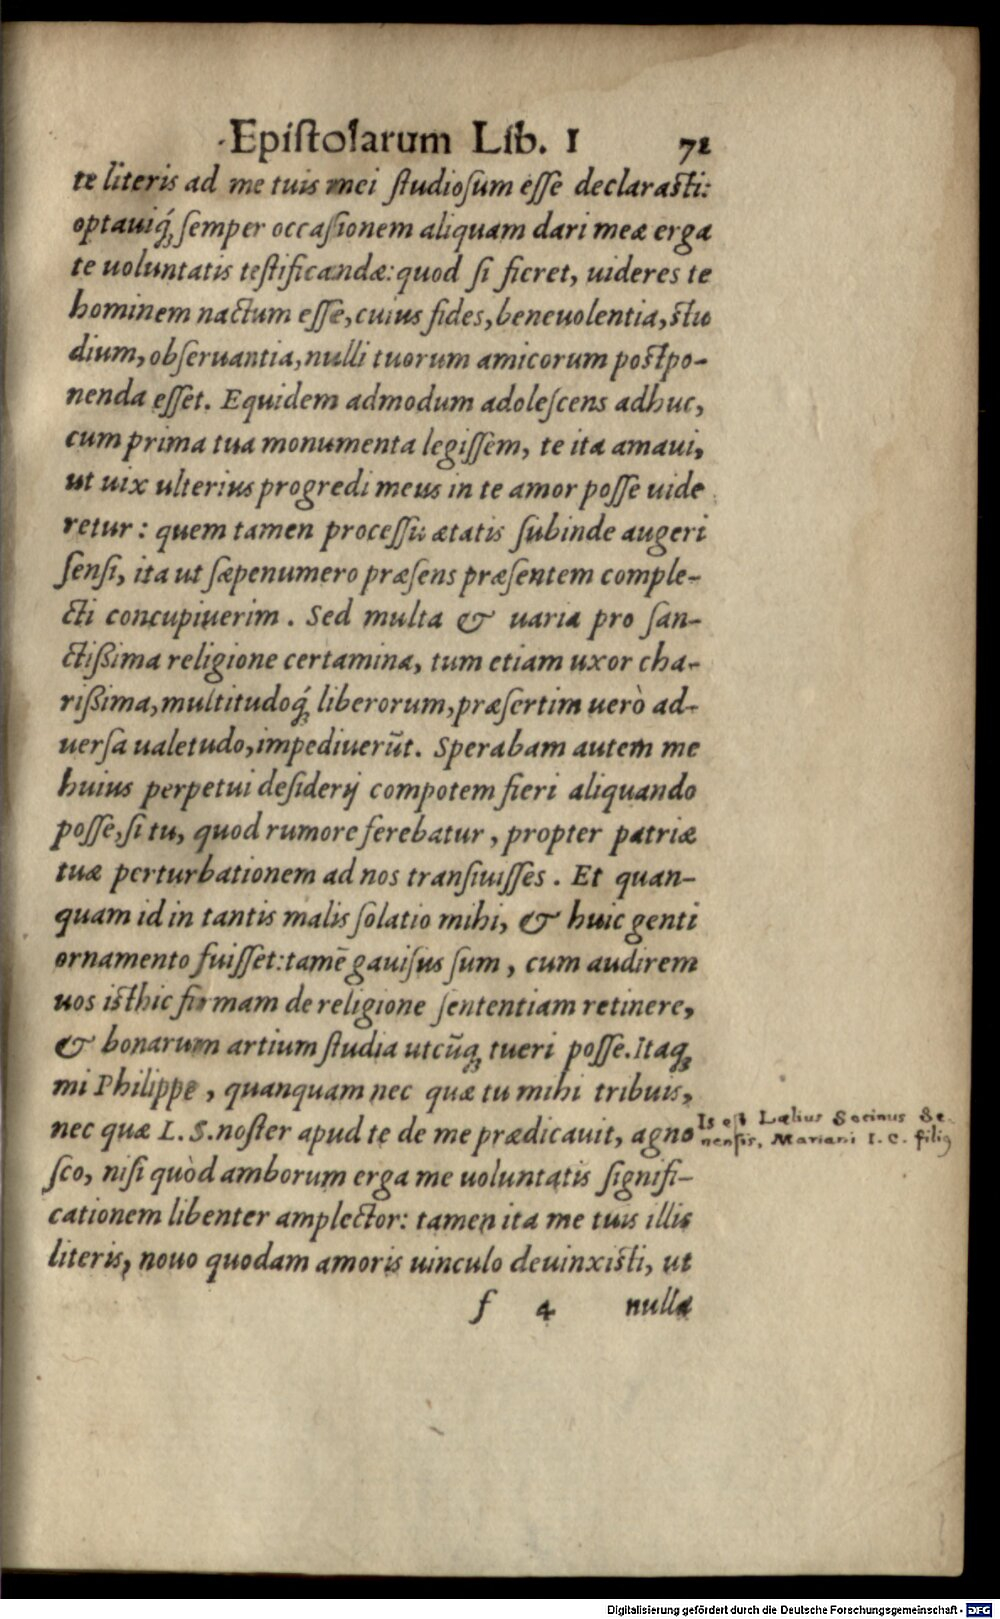 Epistolarum Lib. I 71
te literis ad me tuis mei ſtudioſum eſſe declaraſti:
optauiq́; ſemper occaſionem aliquam dari meæ erga
te uoluntatis teſtificandæ: quod ſi fieret, uideres te
hominem nactum eſſe, cuius fides, beneuolentia, ſtu
dium, obſeruantia, nulli tuorum amicorum poſtpo-
nenda eſſet. Equidem admodum adoleſcens adhuc,
cum prima tua monumenta legiſſem, te ita amaui,
ut uix ulterius progredi meus in te amor poſſe uide
retur: quem tamen proceſſu ætatis ſubinde augeri
ſenſi, ita ut ſæpenumero præſens præſentem comple-
cti concupiuerim. Sed multa & uaria pro ſan-
ctißima religione certamina, tum etiam uxor cha-
rißima, multitudoq́; liberorum, præſertim uerò ad-
uerſa ualetudo, impediuerũt. Sperabam autem me
huius perpetui deſiderij compotem fieri aliquando
poſſe, ſi tu, quod rumore ferebatur, propter patriæ
tuæ perturbationem ad nos tranſiuiſſes. Et quan-
quam id in tantis malis ſolatio mihi, & huic genti
ornamento fuiſſet: tamẽ gauiſus ſum, cum audirem
uos iſthic firmam de religione ſententiam retinere,
& bonarum artium ſtudia utcũq; tueri poſſe. Itaq;
mi Philippe, quanquam nec quæ tu mihi tribuis,
nec quæ L. S. noſter apud te de me prædicauit, agno
ſco, niſi quòd amborum erga me uoluntatis ſignifi-
cationem libenter amplector: tamen ita me tuis illis
literis, nouo quodam amoris uinculo deuinxiſti, ut
f 4 nullæ
Is eſt Lælius Socinus Se-
nenſis, Mariani I. C. filiꝰ
Digitalisierung gefördert durch die Deutsche Forschungsgemeinschaft - DFG